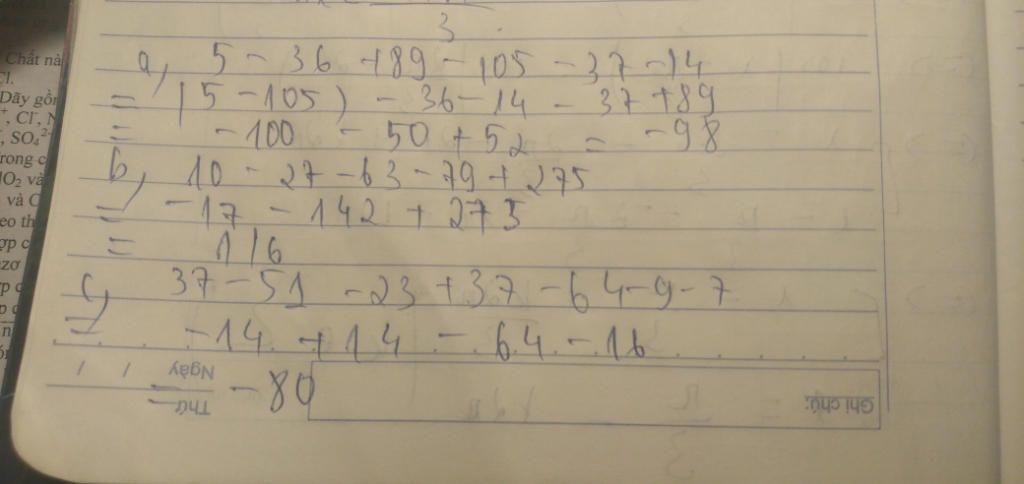 3
a, 5 - 36 + 89 - 105 - 37 - 14
= (5 - 105) - 36 - 14 - 37 + 89
= -100 - 50 + 52 = -98
b, 10 - 27 - 63 - 79 + 275
= -17 - 142 + 275
= 116
c, 37 - 51 - 23 + 37 - 64 - 9 - 7
= -14 + 14 - 64 - 16
= -80
Ngày / /
Thứ
Ghi chú:
Chất nà
Cl.
Dãy gồn
⁺, Cl⁻, N
SO₄²⁻
rong c
và
và C
eo th
ợp c